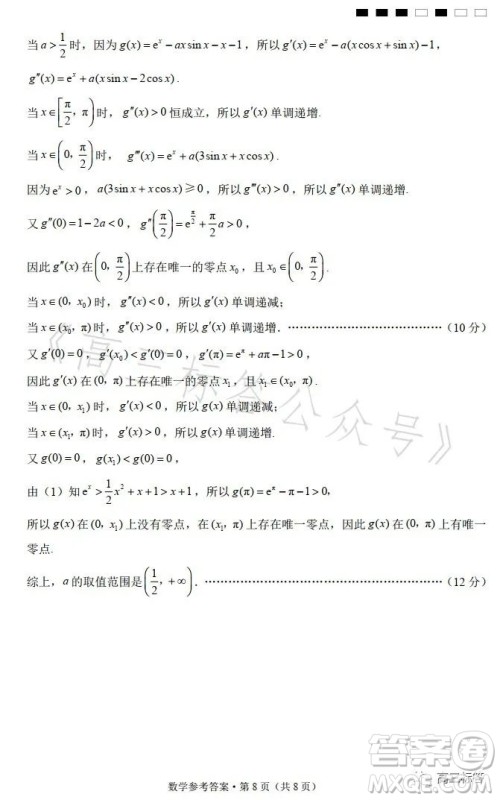 当 a>1/2 时，因为 g(x)=eˣ-ax sin x-x-1，所以 g′(x)=eˣ-a(x cos x+sin x)-1，
g″(x)=eˣ+a(x sin x-2cos x).
当 x∈[π/2，π) 时，g″(x)>0 恒成立，所以 g′(x) 单调递增.
当 x∈(0，π/2) 时，g‴(x)=eˣ+a(3sin x+x cos x).
因为 eˣ>0，a(3sin x+x cos x)≥0，所以 g‴(x)>0，所以 g″(x) 单调递增.
又 g″(0)=1-2a<0，g″(π/2)=e^(π/2)+(π/2)a>0，
因此 g″(x) 在 (0，π/2) 上存在唯一的零点 x₀，且 x₀∈(0，π/2).
当 x∈(0，x₀) 时，g″(x)<0，所以 g′(x) 单调递减；
当 x∈(x₀，π) 时，g″(x)>0，所以 g′(x) 单调递增.……………………………（10 分）
又 g′(0)=0，g′(x₀)<g′(0)=0，g′(π)=e^π+aπ-1>0，
因此 g′(x) 在 (0，π) 上存在唯一的零点 x₁，且 x₁∈(x₀，π).
当 x∈(0，x₁) 时，g′(x)<0，所以 g(x) 单调递减；
当 x∈(x₁，π) 时，g′(x)>0，所以 g(x) 单调递增.
又 g(0)=0，g(x₁)<g(0)=0，
由（1）知 eˣ>1/2x²+x+1>x+1，所以 g(π)=e^π-π-1>0，
所以 g(x) 在 (0，x₁) 上没有零点，在 (x₁，π) 上存在唯一零点，因此 g(x) 在 (0，π) 上有唯一
零点.
综上，a 的取值范围是 (1/2，+∞).……………………………（12 分）
《高三标答公众号》
数学参考答案·第 8 页（共 8 页）
高三标答
答案圈
MXQE.COM